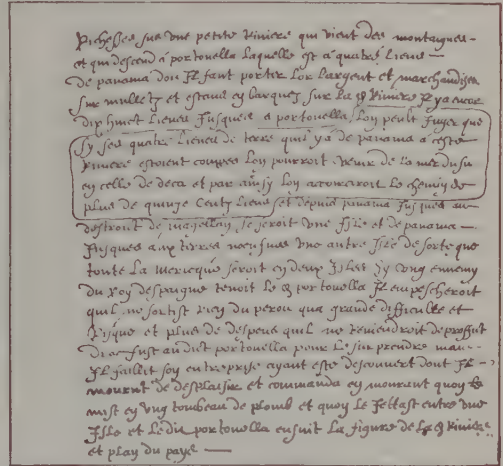 Richesses sur une petite riviere qui vient des montaignes
et qui descend a portovella laquelle est a quatre lieues
de panama dou Il fault porter lor largent et marchandises
sur mulletz et estans en barques sur la riviere Il ya encore
dix huict lieues Jusques a portovella, lon peult Juger que
sy ses quatre lieues de terre quil y a de panama a ceste
riviere estoient couppes lon pourroit venir de la mer du su
en celle de deca et par ainsy lon accourciroit le chemin de
plus de quinze centz lieues et depuis panama Jusques au
destroit de magellan, se seroit une Isle et de panama
Jusques aux terres neufves une autre Isle de sorte que
toute la mericque seroit en deux Isles, sy ung ennemy
du Roy despaigne tenoit le portovella Il empescheroit
quil ne sortist rien du perou qua grande difficulte et
Risque et plus de despens quil ne reviendroit de proffit
drac fust audict portovella pour le surprendre mais
Il faillit son entreprise ayant este descouvert dont Il
mourut de desplaisir et commanda en mourant quon le
mist en ung tombeau de plomb et quon le Jettast entre une
Isle et ledict portovella ensuit la figure de la riviere
et plan du paye